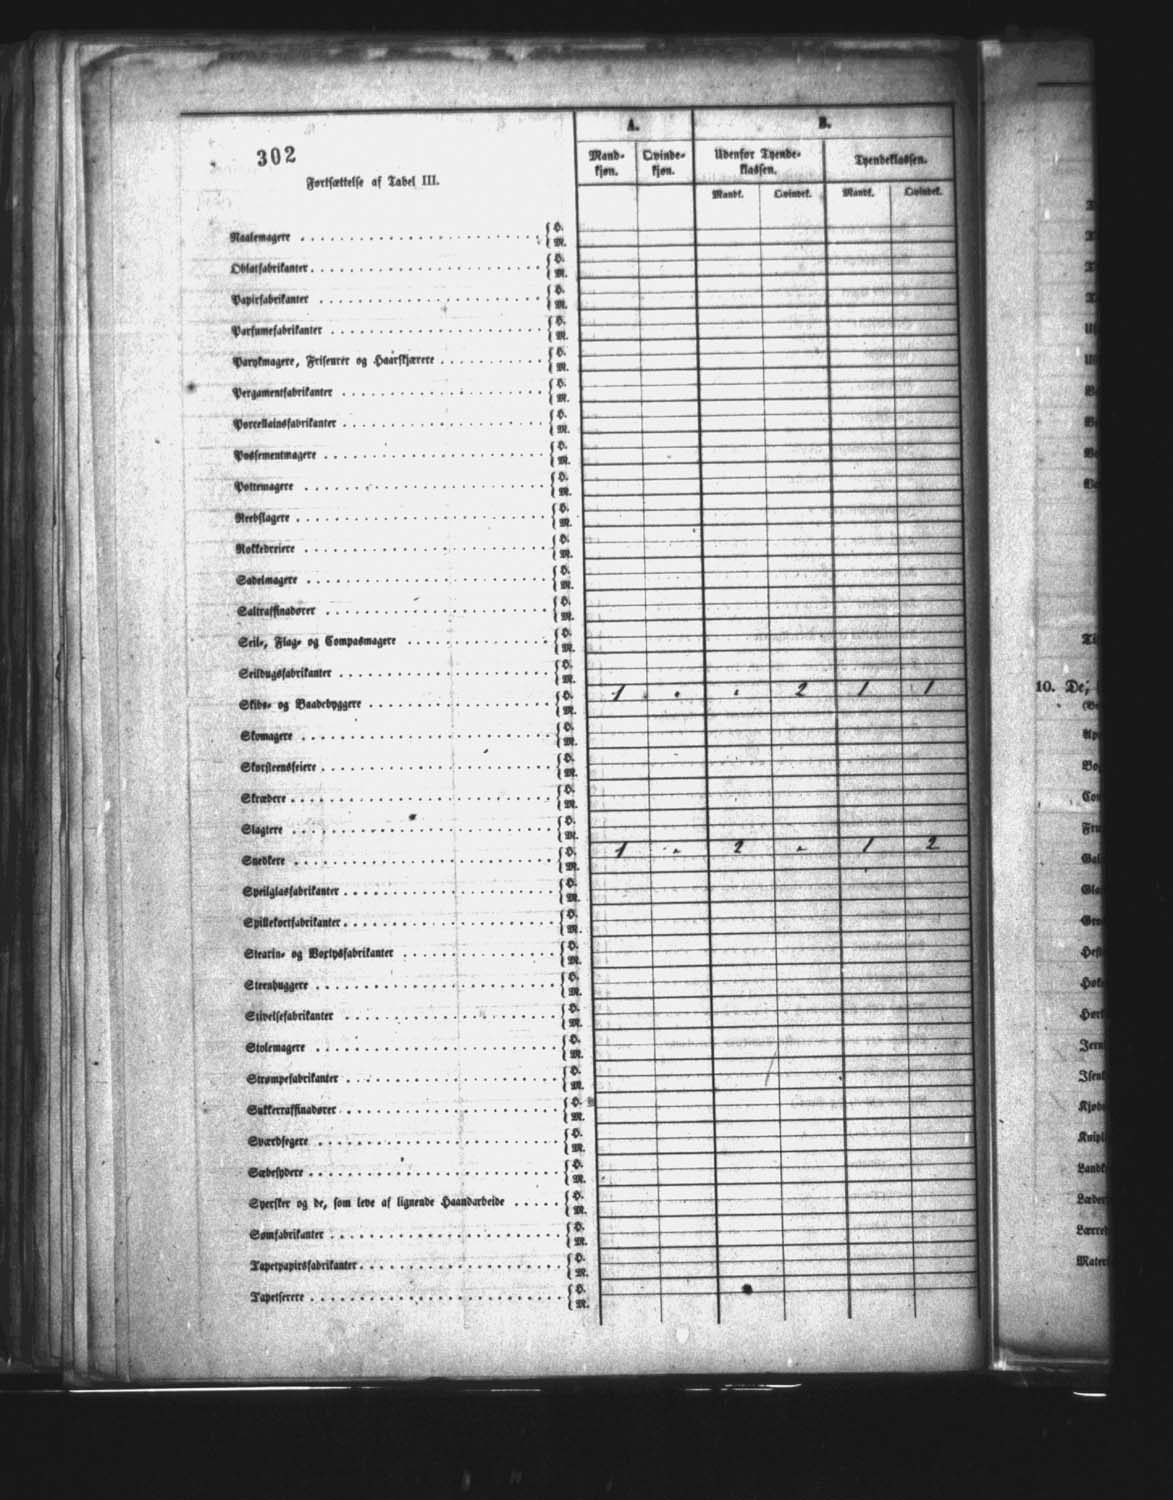 302
Fortsættelse af Tabel III.
A.
B.
Mand-
kjøn.
Qvinde-
kjøn.
Udenfor Tyende-
klassen.
Tyendeklassen.
Mandk.
Qvindek.
Mandk.
Qvindek.
Naalemagere H. M.
Oblatfabrikanter H. M.
Papirfabrikanter H. M.
Parfumefabrikanter H. M.
Parykmagere, Friseurer og Haarskjærere H. M.
Pergamentfabrikanter H. M.
Porcellainsfabrikanter H. M.
Possementmagere H. M.
Pottemagere H. M.
Reebslagere H. M.
Rokkedreiere H. M.
Sadelmagere H. M.
Saltraffinadører H. M.
Seil-, Flag- og Compasmagere H. M.
Seildugsfabrikanter H. M.
Skibs- og Baadebyggere H. 1 . . 2 1 1 M.
Skomagere H. M.
Skorsteensfeiere H. M.
Skrædere H. M.
Slagtere H. M.
Snedkere H. 1 - 2 - 1 2 M.
Speilglasfabrikanter H. M.
Spillekortfabrikanter H. M.
Stearin- og Voxlysfabrikanter H. M.
Steenhuggere H. M.
Stivelsefabrikanter H. M.
Stolemagere H. M.
Strømpefabrikanter H. M.
Sukkerraffinadører H. M.
Sværdfegere H. M.
Sæbesydere H. M.
Syersker og de, som leve af lignende Haandarbeide H. M.
Sømfabrikanter H. M.
Tapetpapirsfabrikanter H. M.
Tapetserere H. M.
10. De,